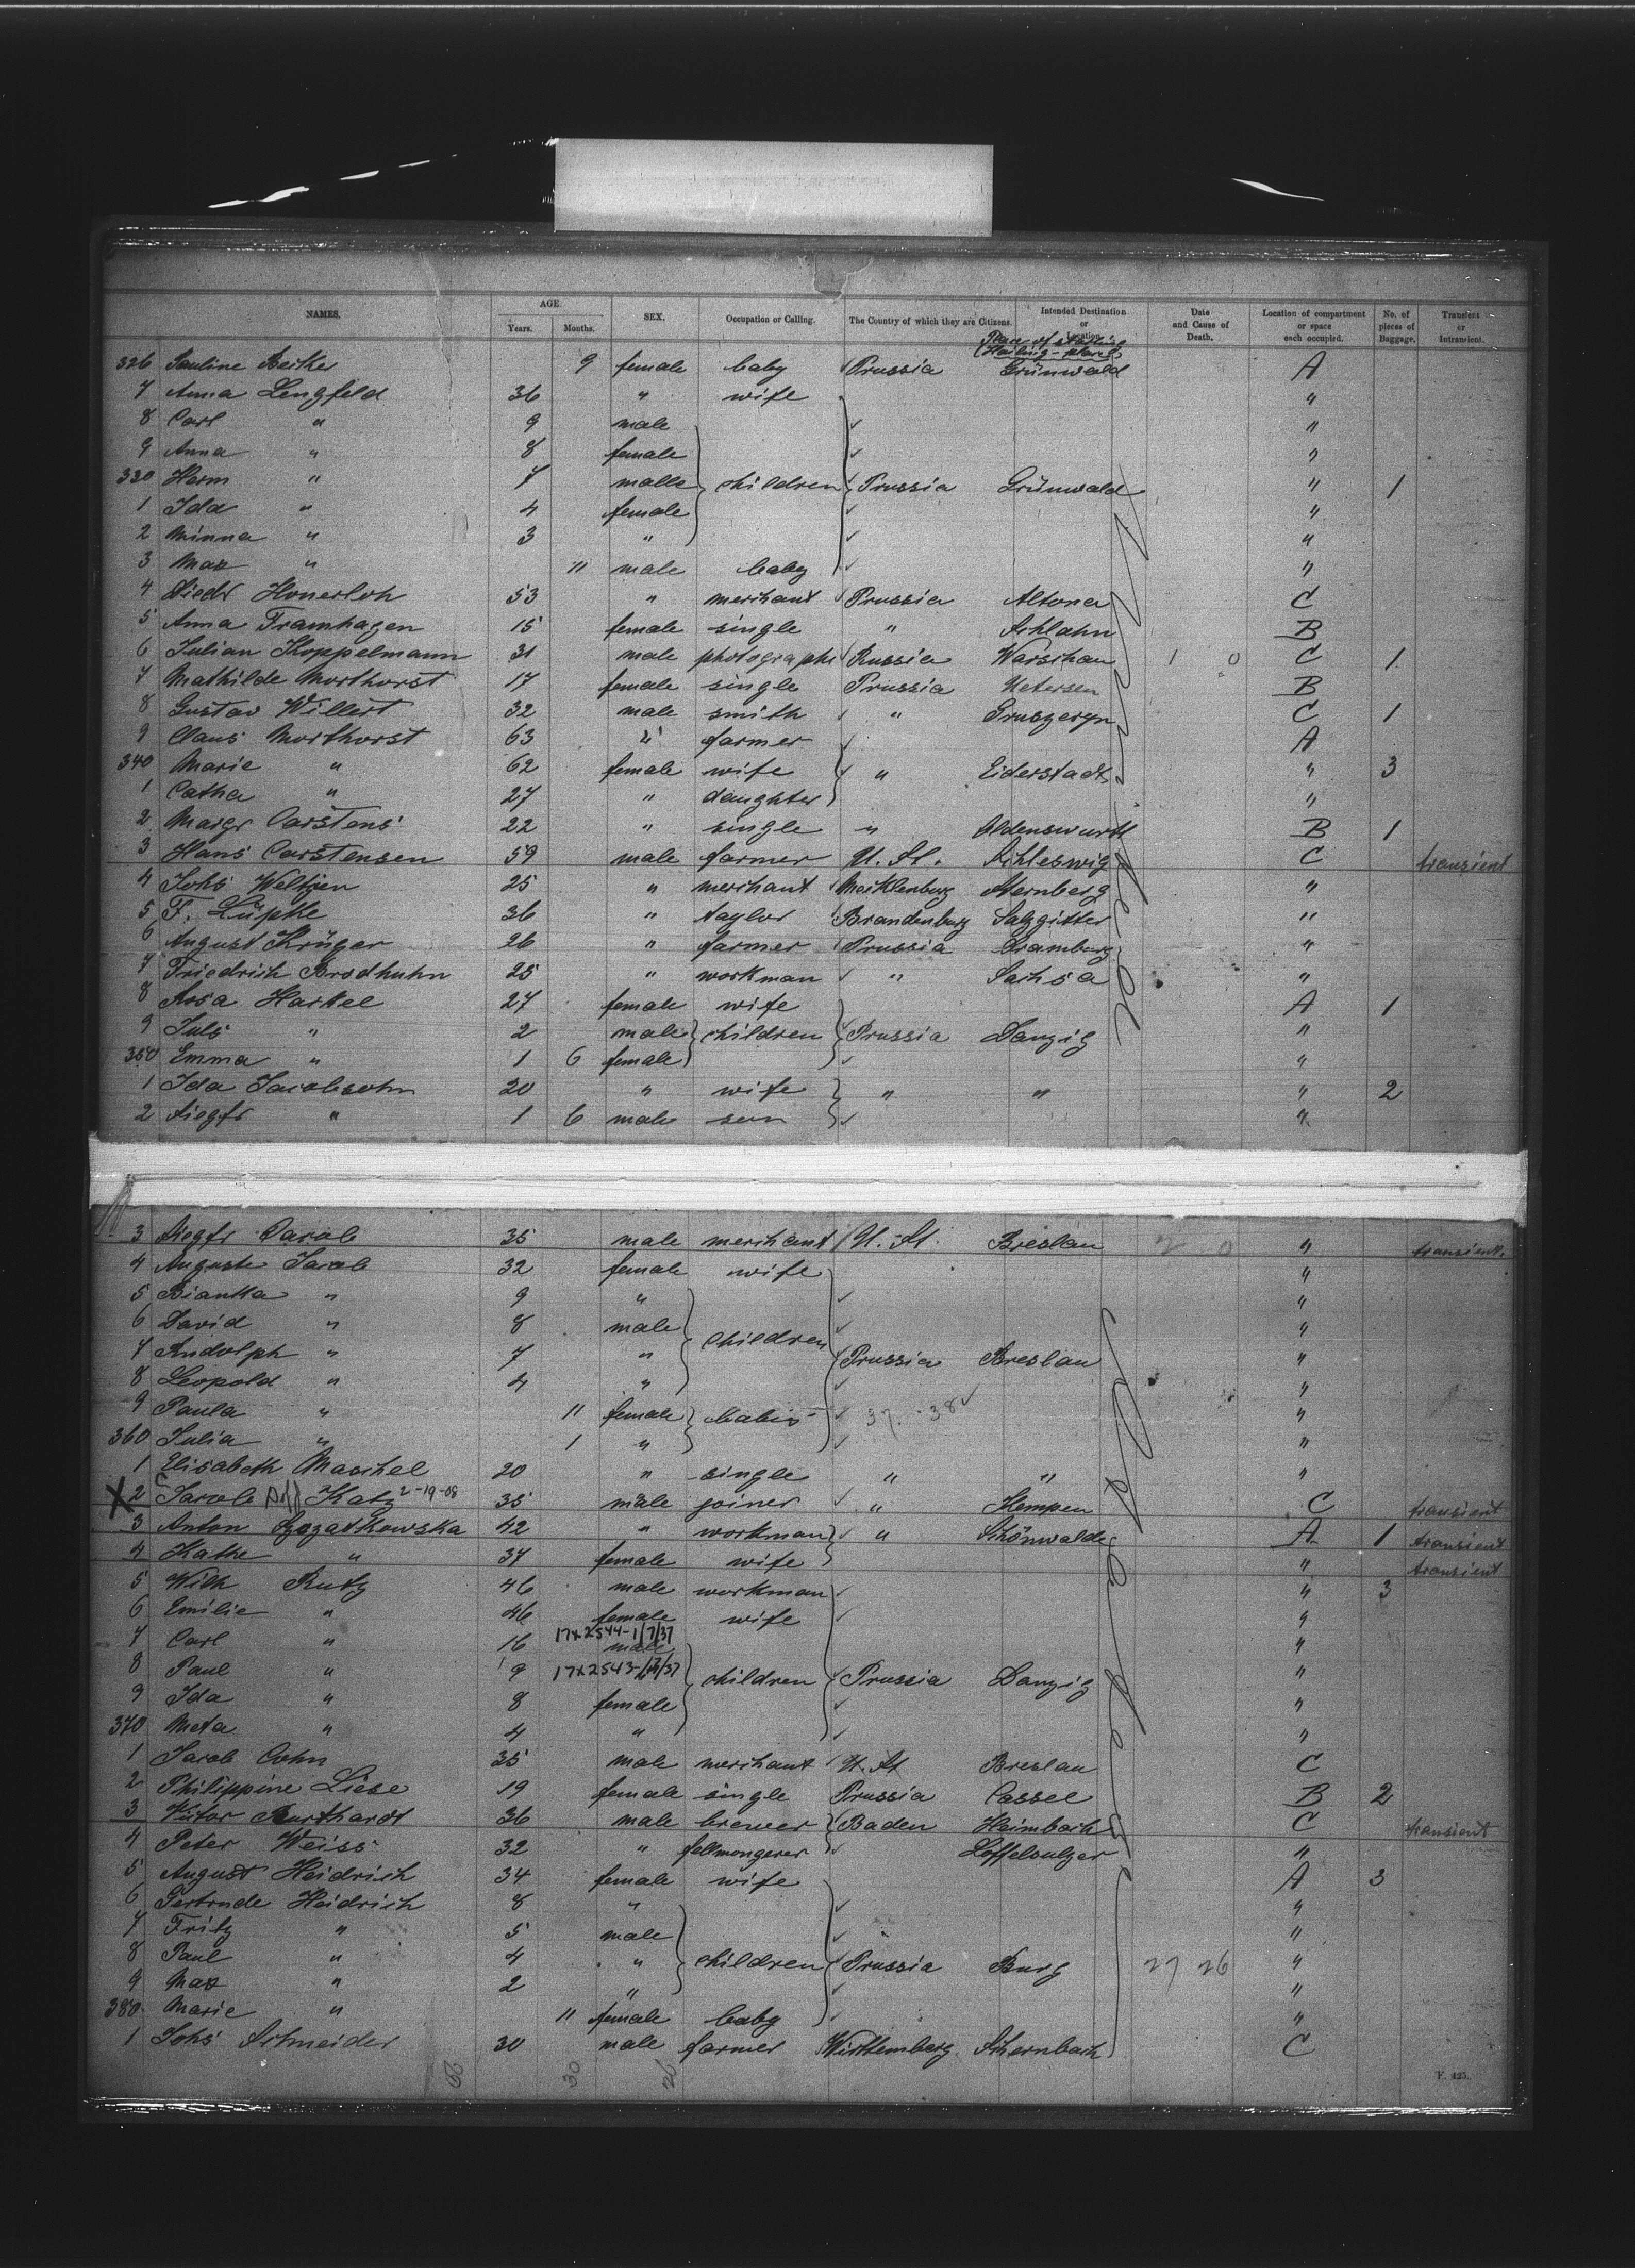 NAMES. AGE. Years. Months. SEX. Occupation or Calling. The Country of which they are Citizens. Intended Destination or Location. Date and Cause of Death. Location of compartment or space each occupied. No. of pieces of Baggage. Transient or Intransient.
326 Pauline Beike 9 female baby Prussia Grünwald A
7 Anna Lengfeld 36 " wife "
8 Carl " 9 male "
9 Anna " 8 female "
330 Herm " 7 malle children Prussia Grünwald " 1
1 Ida " 4 female "
2 Minna " 3 " "
3 Max " 11 male baby "
4 Diedr Honerloh 53 " merchant Prussia Altona C
5 Anna Framhagen 15 female single " B
6 Julian Koppelmann 31 male photographe Russia Warschau 1 0 C 1
7 Mathilde Morthorst 17 female single Prussia Uetersen B
8 Gustav Willert 32 male smith " C 1
9 Claus Morthorst 63 " farmer A
340 Marie " 62 female wife " Eiderstadt " 3
1 Catha " 27 " daughter "
2 Margr Carstens 22 " single " Oldenswurth B 1
3 Hans Carstensen 59 male farmer U. St. Schleswig C transient
4 Johs Weltzien 25 " merchant Mecklenburg Sternberg "
5 F. Lüpke 36 " taylor Brandenburg Salzgitter "
6 August Krüger 26 " farmer Prussia Dramburg "
7 Friedrich Brodhuhn 25 " workman " Sachsa "
8 Rosa Harkel 27 female wife A 1
9 Juls " 2 male children Prussia Danzig "
350 Emma " 1 6 female "
1 Ida Jacobsohn 20 " wife " " " 2
2 Siegfr " 1 6 male son "
3 Siegfr Jacob 35 male merchant U. St. Breslau 2 0 " transient.
4 Auguste Jacob 32 female wife "
5 Bianka " 9 " "
6 David " 8 male children "
7 Rudolph " 7 " Prussia Breslau "
8 Leopold " 4 " "
9 Paula " 11 female babies 37. 38 "
360 Julia " 1 " "
1 Elisabeth Maschel 20 " single " " "
X 2 Jacob Katz 2-19-08 35 male joiner " Kempen C transient
3 Anton Szozatkowska 42 " workman " Schönwalde A 1 transient
4 Kathe " 37 female wife " transient
5 Wilh Rutz 46 male workman " 3
6 Emilie " 46 female wife "
7 Carl " 16 17x2544-1/7/37 male "
8 Paul " 9 17x2543-1/7/37 " children Prussia Danzig "
9 Ida " 8 female "
370 Meta " 4 " "
1 Jacob Cohn 35 male merchant U. St Breslau C
2 Philippine Liese 19 female single Prussia Cassel B 2
3 Victor Burkhardt 36 male brewer Baden Heimbach C transient
4 Peter Weiss 32 " fellmongerer "
5 August Heidrich 34 female wife A 3
6 Gertrude Heidrich 8 " "
7 Fritz " 5 male "
8 Paul " 4 " children Prussia Burg 27 26 "
9 Max " 2 " "
380 Marie " 11 female baby "
1 Johs Schneider 30 male farmer Württemberg C
30 26
F. 425.